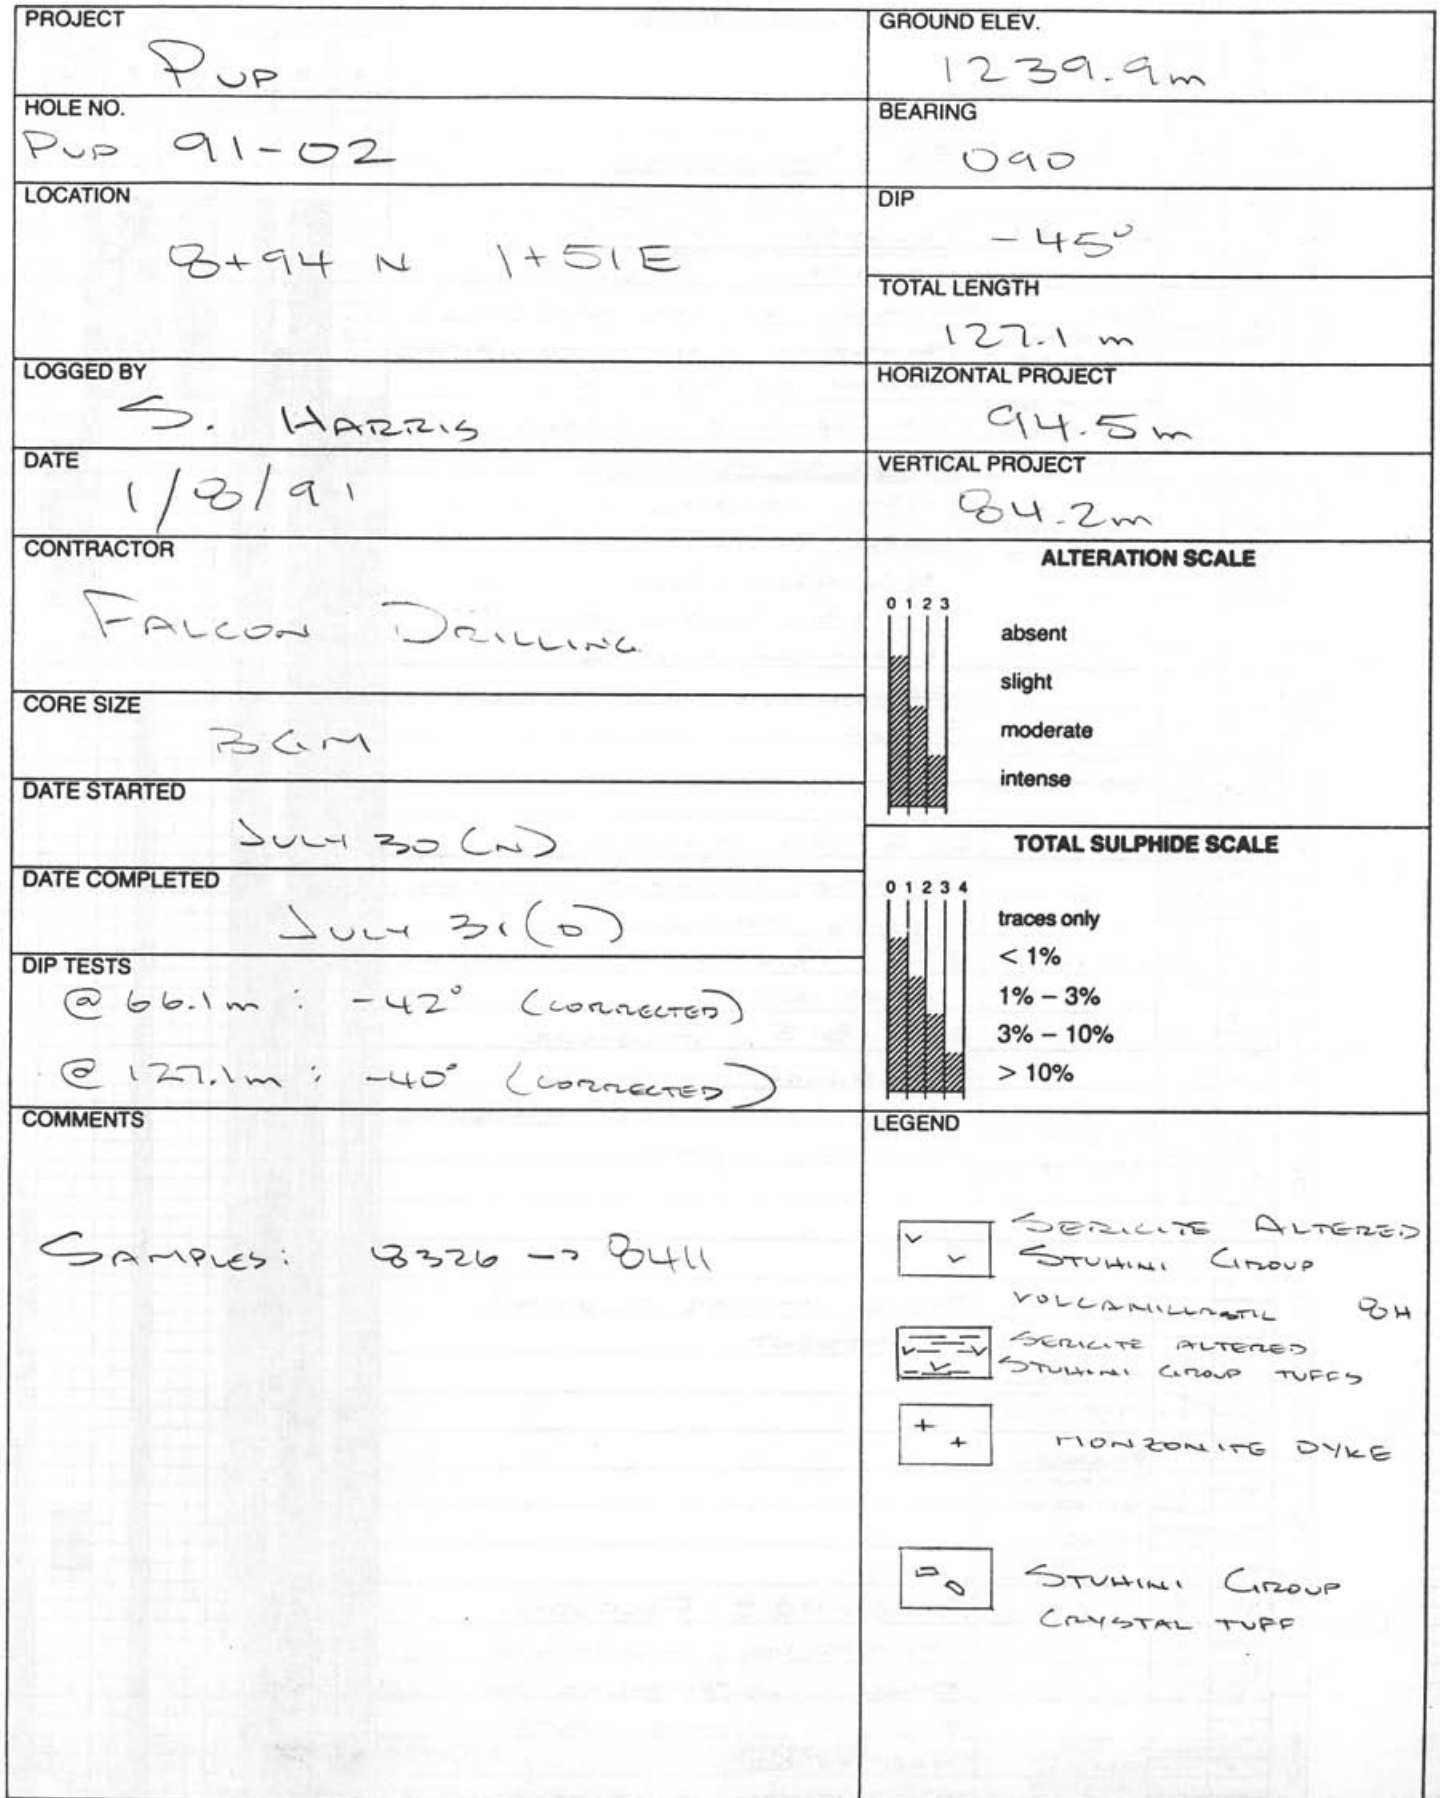 PROJECT
Pup
HOLE NO.
Pup 91-02
LOCATION
8+94 N 1+51E
LOGGED BY
S. HARRIS
DATE
1/8/91
CONTRACTOR
FALCON DRILLING
CORE SIZE
BGM
DATE STARTED
JULY 30 (N)
DATE COMPLETED
JULY 31 (D)
DIP TESTS
@ 66.1m : -42° (CORRECTED)
@ 127.1m : -40° (CORRECTED)
COMMENTS
SAMPLES: 8326 → 8411
GROUND ELEV.
1239.9m
BEARING
090
DIP
-45°
TOTAL LENGTH
127.1 m
HORIZONTAL PROJECT
94.5m
VERTICAL PROJECT
84.2m
ALTERATION SCALE
0 1 2 3
absent
slight
moderate
intense
TOTAL SULPHIDE SCALE
0 1 2 3 4
traces only
< 1%
1% – 3%
3% – 10%
> 10%
LEGEND
SERICITE ALTERED
STUHINI GROUP
VOLCANICLASTIC
SERICITE ALTERED
STUHINI GROUP TUFFS
MONZONITE DYKE
STUHINI GROUP
CRYSTAL TUFF